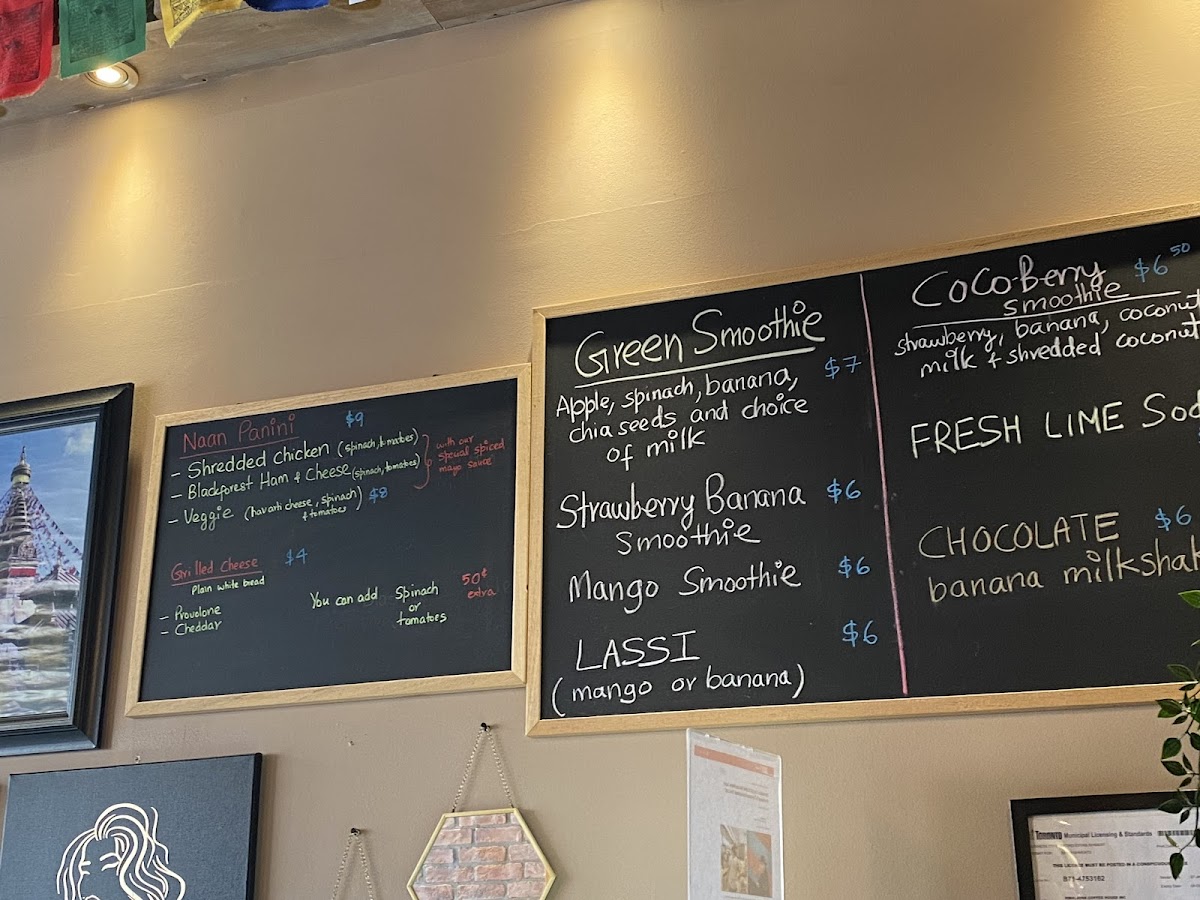 Naan Panini $9
- Shredded Chicken (spinach, tomatoes)
- Blackforest Ham & Cheese (spinach, tomatoes)
with our
special spiced
mayo sauce
- Veggie (havarti cheese, spinach & tomatoes) $8
Grilled Cheese $4
Plain white bread
- Provolone
- Cheddar
You can add Spinach
or
tomatoes
50¢
extra
Green Smoothie
Apple, spinach, banana, $7
chia seeds and choice
of milk
Strawberry Banana $6
Smoothie
Mango Smoothie $6
LASSI $6
(mango or banana)
CoCo-Berry $6 50
smoothie
strawberry, banana, coconut
milk & shredded coconut
FRESH LIME Sod
CHOCOLATE $6
banana milkshak
TORONTO Municipal Licensing & Standards
THIS LICENCE MUST BE POSTED IN A
B71-4753162